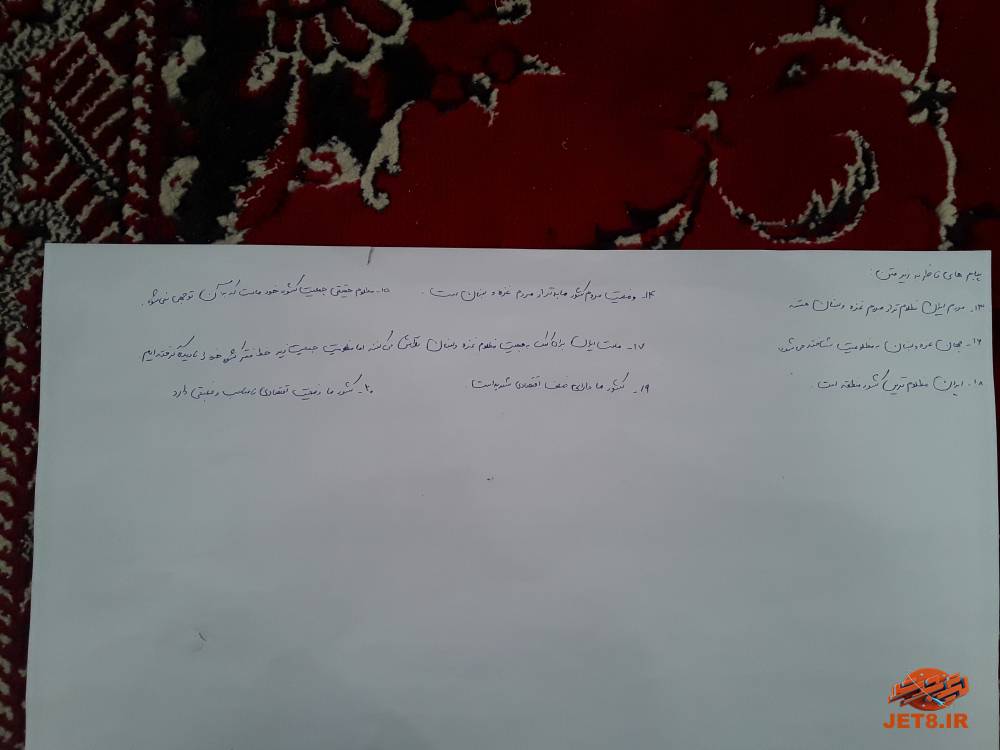 پیام های ناظر به زیر متن:
۱۳- مردم ایران مظلوم تر از مردم غزه و لبنان هستند
۱۴- وضعیت مردم کشور ما بدتر از مردم غزه و لبنان است.
۱۵- مظلوم حقیقی جمعیت کشور خود ماست که به آن توجهی نمی شود.
۱۶- جهان غزه و لبنان به مظلومیت شناخته می شوند
۱۷- ملت ایران برای کمک به جمعیت مظلوم غزه و لبنان می کنند اما مظلومیت جمعیت زیر خط فقر کشور خود را نادیده گرفته ایم
۱۸- ایران مظلوم ترین کشور منطقه است.
۱۹- کشور ما دارای ضعف اقتصادی شدید است
۲۰- کشور ما وضعیت اقتصادی نامناسب و دارد
JET8.IR